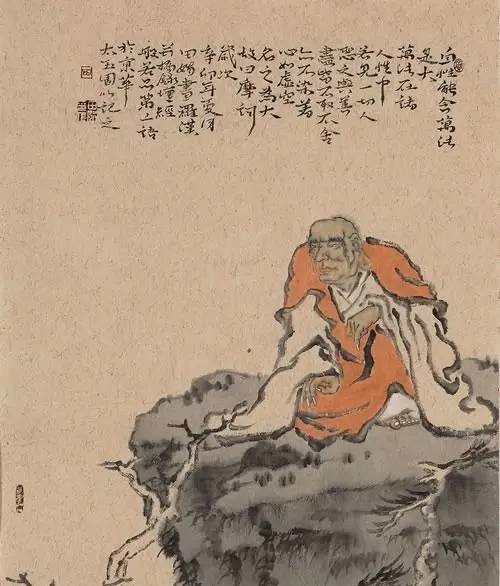 自性能含萬法
是大
萬法在諸
人性中
若見一切人
惡之與善
盡皆不取不舍
亦不染著
心如虛空
名之為大
故曰摩訶
歲次
辛卯年夏月
田畫羅漢
並錄壇經
般若品第二語
於京華
太玉園以記之